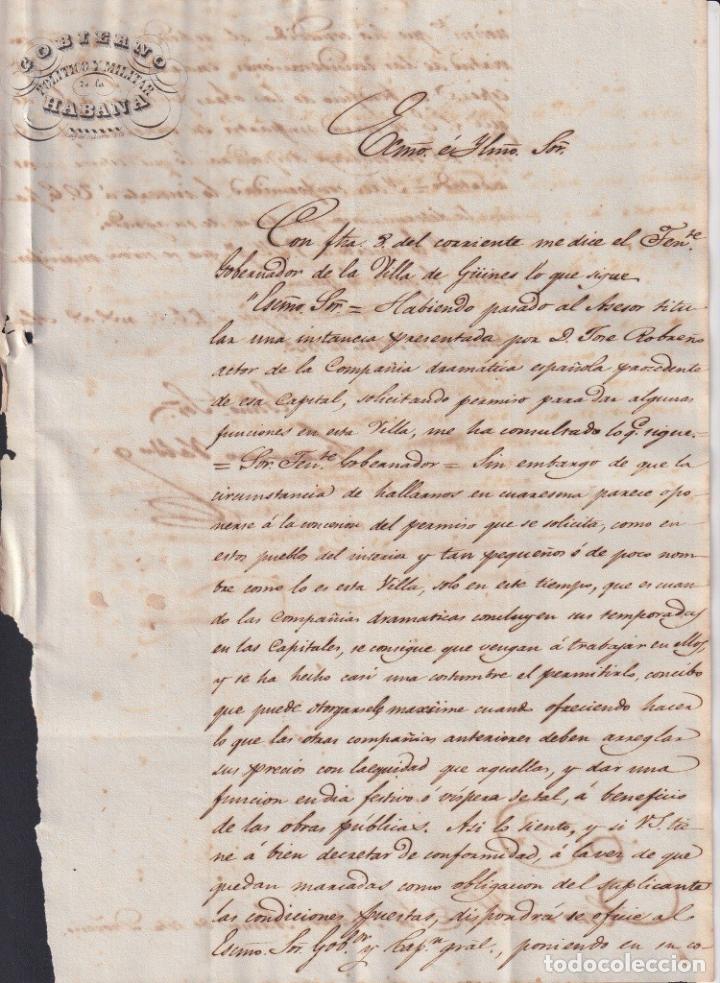 GOBIERNO
POLITICO Y MILITAR
de la
HABANA
Escmo. é Ylmo. Sor.
Con fha. 3. del corriente me dice el Tente.
Gobernador de la Villa de Güines lo que sigue
"Escmo. Sor. = Habiendo pasado al Asesor titu-
lar una instancia presentada por D. Jose Robreño
actor de la Compañia dramática española procedente
de esa Capital, solicitando permiso para dar algunas
funciones en esta Villa, me ha consultado lo q. sigue-
= Sor. Tente. Gobernador = Sin embargo de que la
circunstancia de hallarnos en cuaresma parece opo-
nerse á la concesion del permiso que se solicita, como en
estos pueblos del interior y tan pequeños ó de poco nom-
bre como lo es esta Villa, solo en este tiempo, que es cuan-
do las Compañias dramaticas concluyen sus temporadas
en las Capitales, se consigue que vengan á trabajar en ellos,
y se ha hecho casi una costumbre el permitirlo, concibo
que puede otorgarsele maxime cuando ofreciendo hacer
lo que las otras compañias anteriores deben arreglar
sus precios con la equidad que aquellas, y dar una
funcion en dia festivo ó vispera de tal, á beneficio
de las obras públicas. Asi lo siento, y si VS. tie-
ne á bien decretar de conformidad, á la vez de que
quedan marcadas como obligacion del suplicante
las condiciones puestas, dispondrá se oficie al
Escmo. Sor. Gobor. y Capn. gral., poniendo en su co-
todocoleccion.net